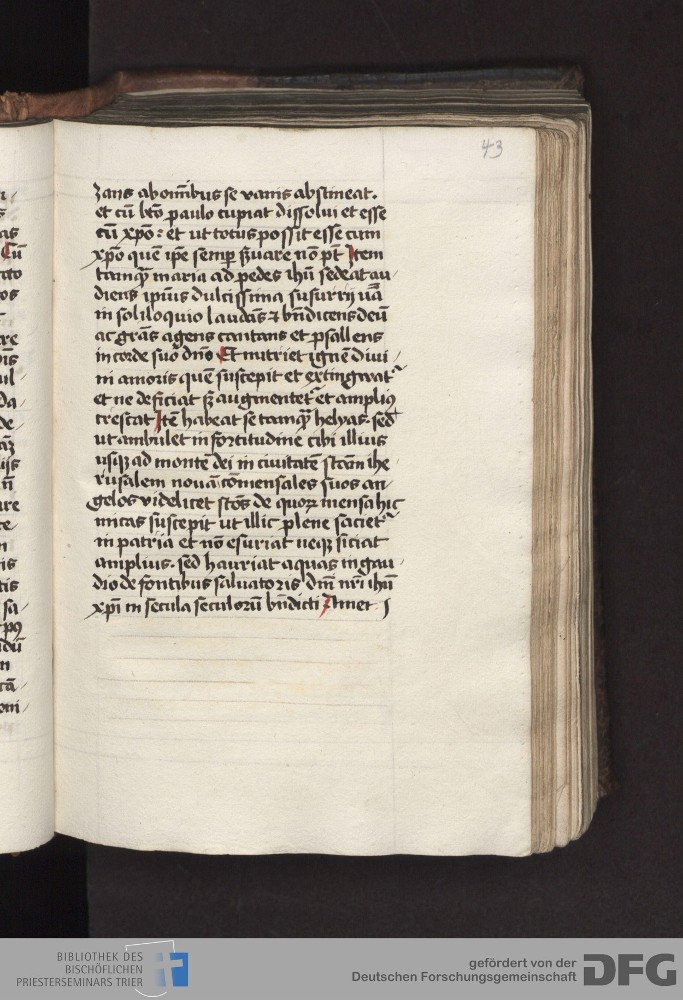 43
zans ab oīnibus se vanis abstineat.
et cū bt̄o paulo cupiat dissolui et esse
cū xp̄o : et ut totus possit esse cum
xp̄o quē ip̄e semꝑ ẜuare nō pt̄ Item
tamqꝫ maria ad pedes ih̄u sedeat au/
diens ip̄ius dulcissima susurrij
in soliloquio laudās ⁊ bn̄dicens deū
ac gr̄as agens cantans et psallens
in corde suo dn̄o Et nutriet ignē diui/
ni amoris quē suscepit et extingwat᷑
et ne deficiat sꝫ augmentet᷑ et ampliꝰ
crescat Itē habeat se tamqꝫ helyas. sed
ut ambulet in fortitudine cibi illius
usqꝫ ad montē dei in ciuitatē sc̄am ihe/
rusalem nouā cōmensales suos an/
gelos videlicet sc̄os de quoꝝ mensa hic
micas suscepit ut illic plene saciet᷑
in patria et nō esuriat neqꝫ siciat
amplius. sed hauriat aquas in gau/
dio de fontibus saluatoris dn̄i nr̄i ih̄u
xp̄i in secula seculorū bn̄dicti Amen
BIBLIOTHEK DES
BISCHÖFLICHEN
PRIESTERSEMINARS TRIER
gefördert von der
Deutschen Forschungsgemeinschaft
DFG